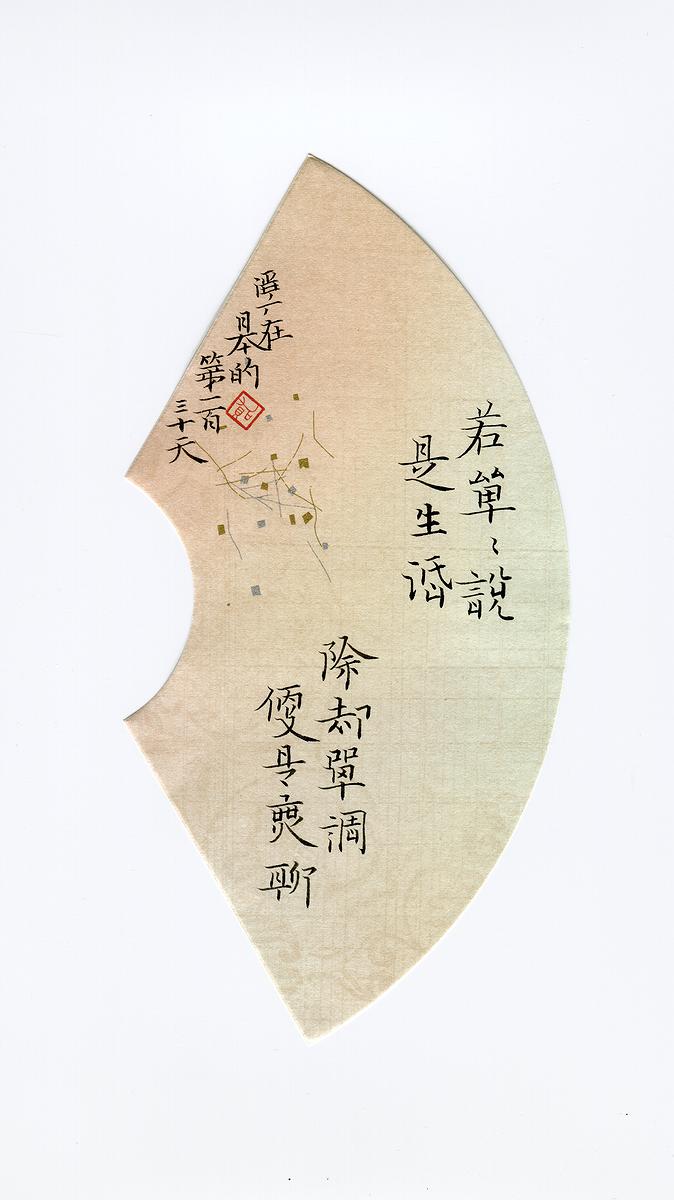 若單〻說
是生活
除却單調
便是無聊
在
日本的
第二百
三十天